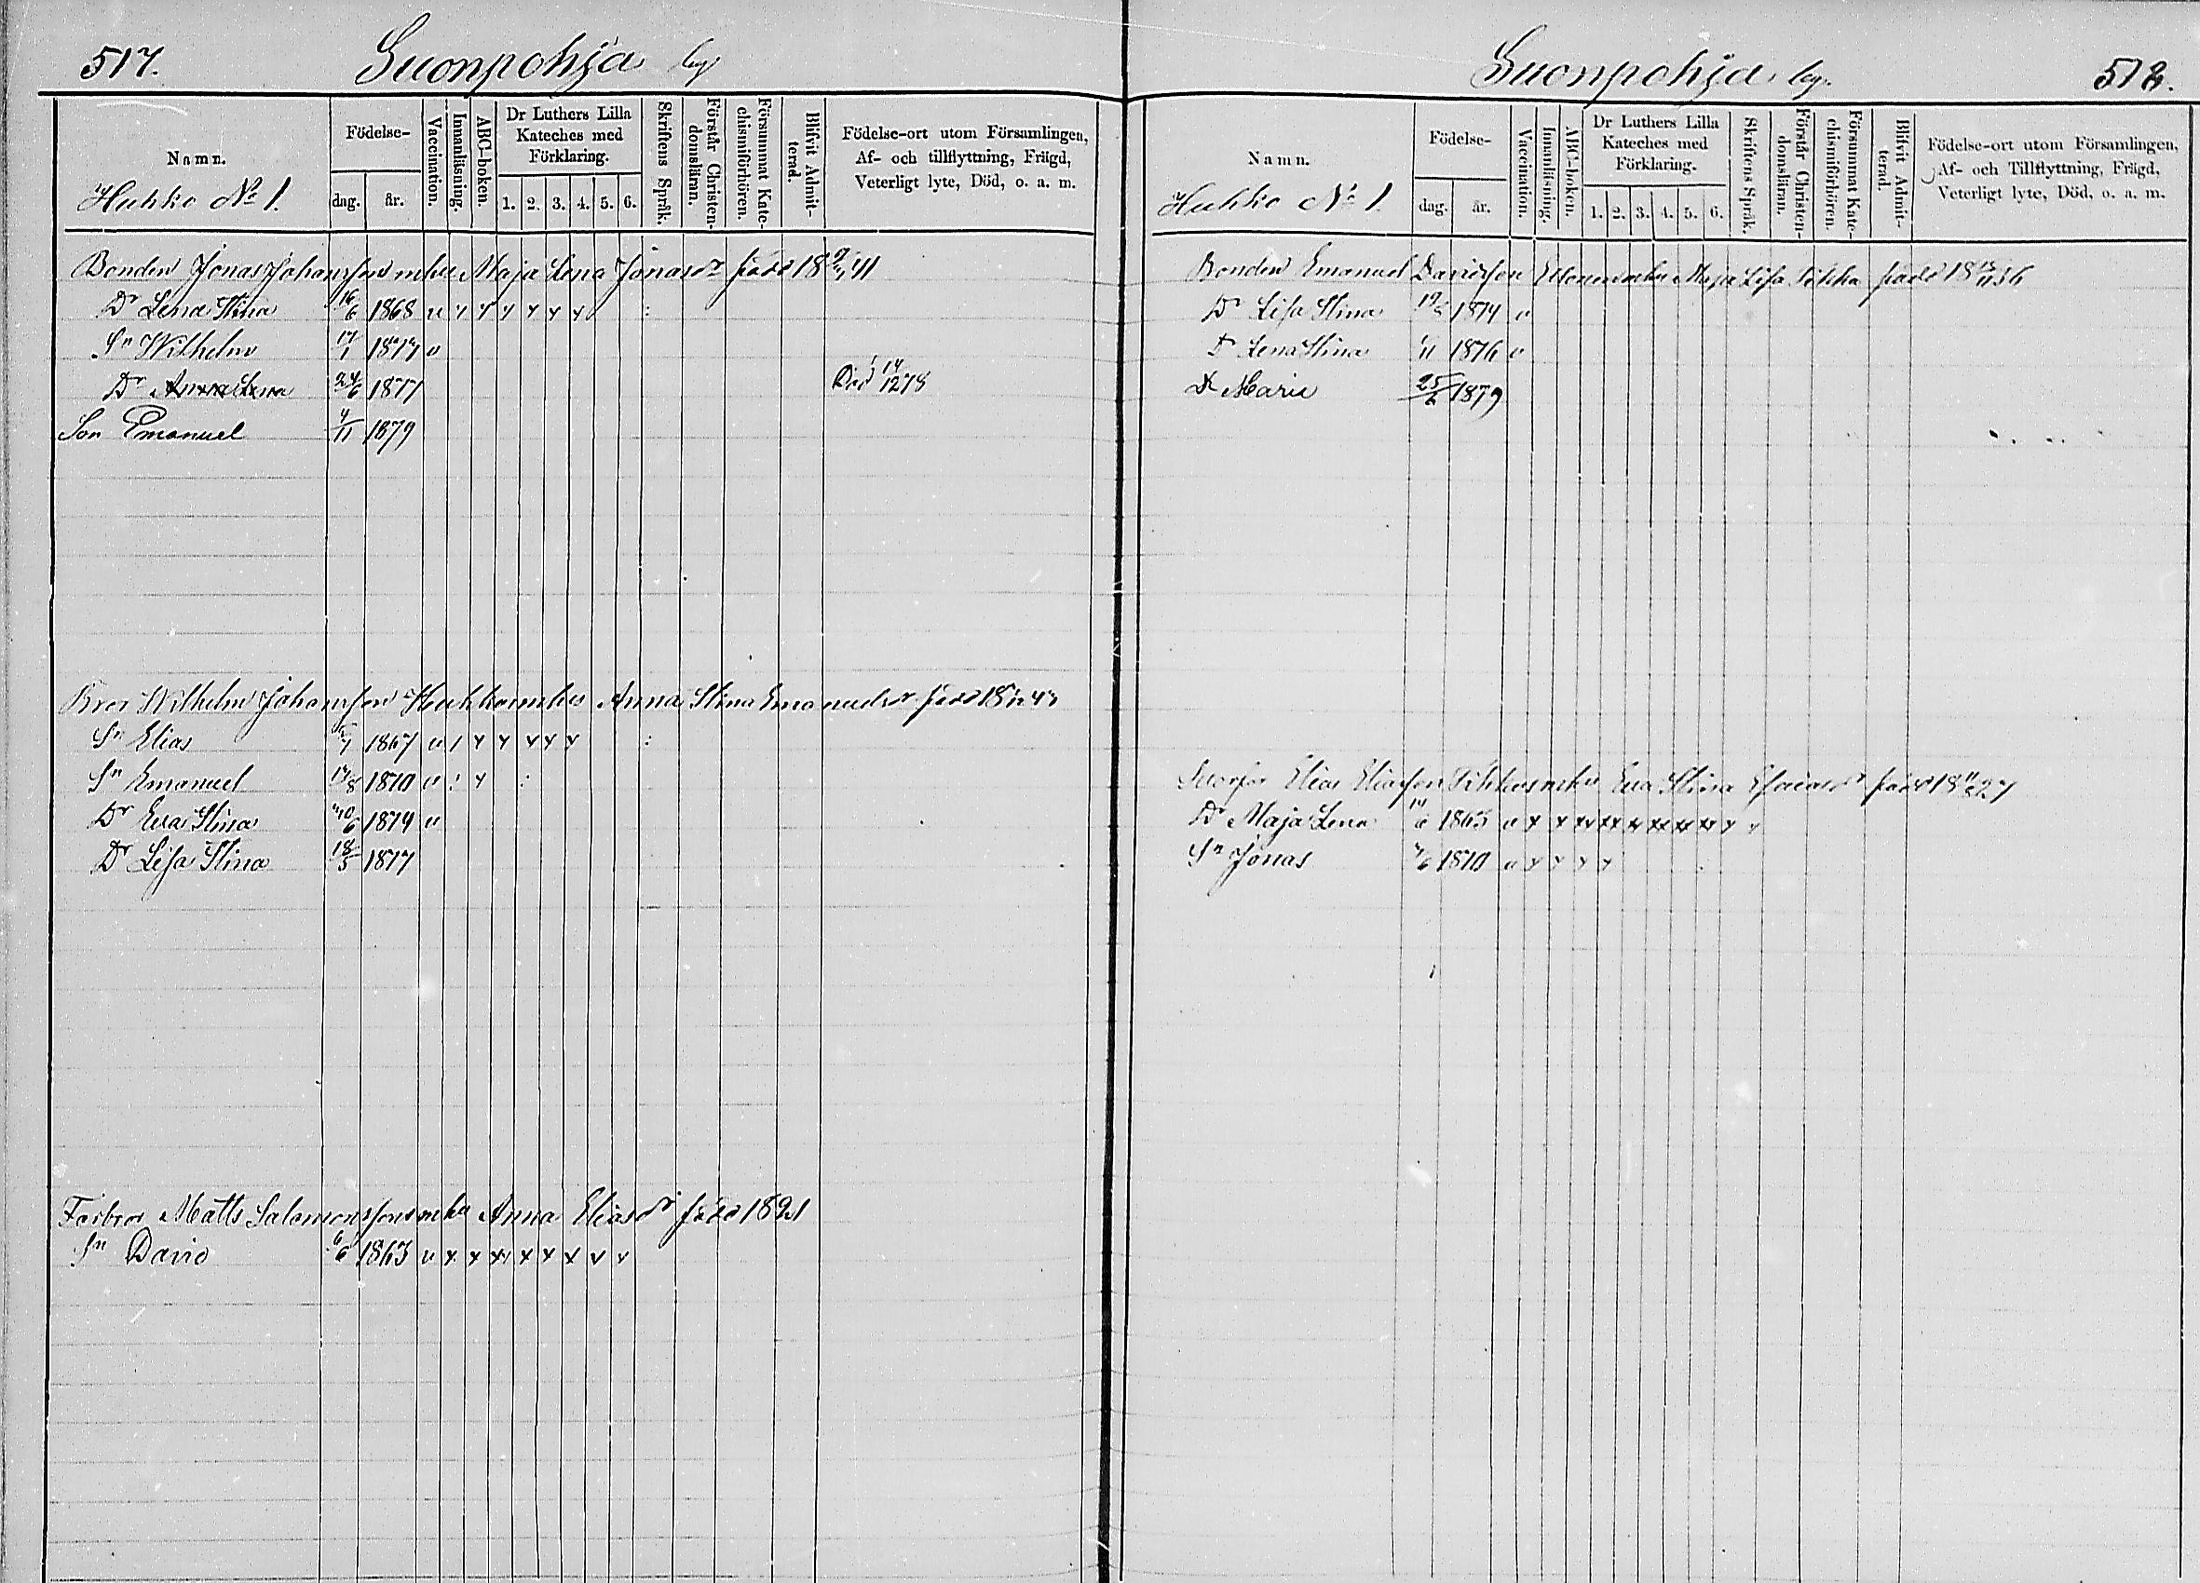 517.
Suonpohja by
Namn.
Huhko No 1.
Födelse-
dag.
år.
Vaccination.
Innanläsning.
ABC-boken.
Dr Luthers Lilla
Kateches med
Förklaring.
1. 2. 3. 4. 5. 6.
Skriftens Språk.
Förstår Christen-
domsläran.
Försummat Kate-
chismiförhören.
Blifvit Admit-
terad.
Födelse-ort utom Församlingen,
Af- och tillflyttning, Frägd,
Veterligt lyte, Död, o. a. m.
Bonden Jonas Johansson mhu Maja Lena Jonasdr född 18 41
Dr Lena Stina 16/6 1868 v
Sn Wilhelm 1 v
Dr Anna Lena 24/6 1877 Död 14 12 78
Son Emanuel 4/11 1879
Bror Wilhelm Johansson Huhko mhu Anna Stina Emanuelsdr född 18
Sn Elias 1867 v
Sn Emanuel 1870 v
Dr Eva Stina 1874 v
Dr Lisa Stina 18/5 1877
Farbror Matts Salomonsson mhu Anna Eliasdr född 1821
Sn David 6/6 1863 v x x x x x x v v
Suonpohja by.
518.
Namn.
Huhko No 1.
Födelse-
dag.
år.
Vaccination.
Innanläsning.
ABC-boken.
Dr Luthers Lilla
Kateches med
Förklaring.
1. 2. 3. 4. 5. 6.
Skriftens Språk.
Förstår Christen-
domsläran.
Försummat Kate-
chismiförhören.
Blifvit Admit-
terad.
Födelse-ort utom Församlingen,
Af- och Tillflyttning, Frägd,
Veterligt lyte, Död, o. a. m.
Bonden Emanuel Davidsson mhu Maja Lisa Pihka född 18 56
Dr Lisa Stina 1874 v
Dr Lena Stina 1876 v
Dr Maria 25/6 1879
Elias Eliasson mhu Eva Stina Esaiasdr född 18 27
Dr Maja Lena 1865 v
Sn Jonas 1870 v